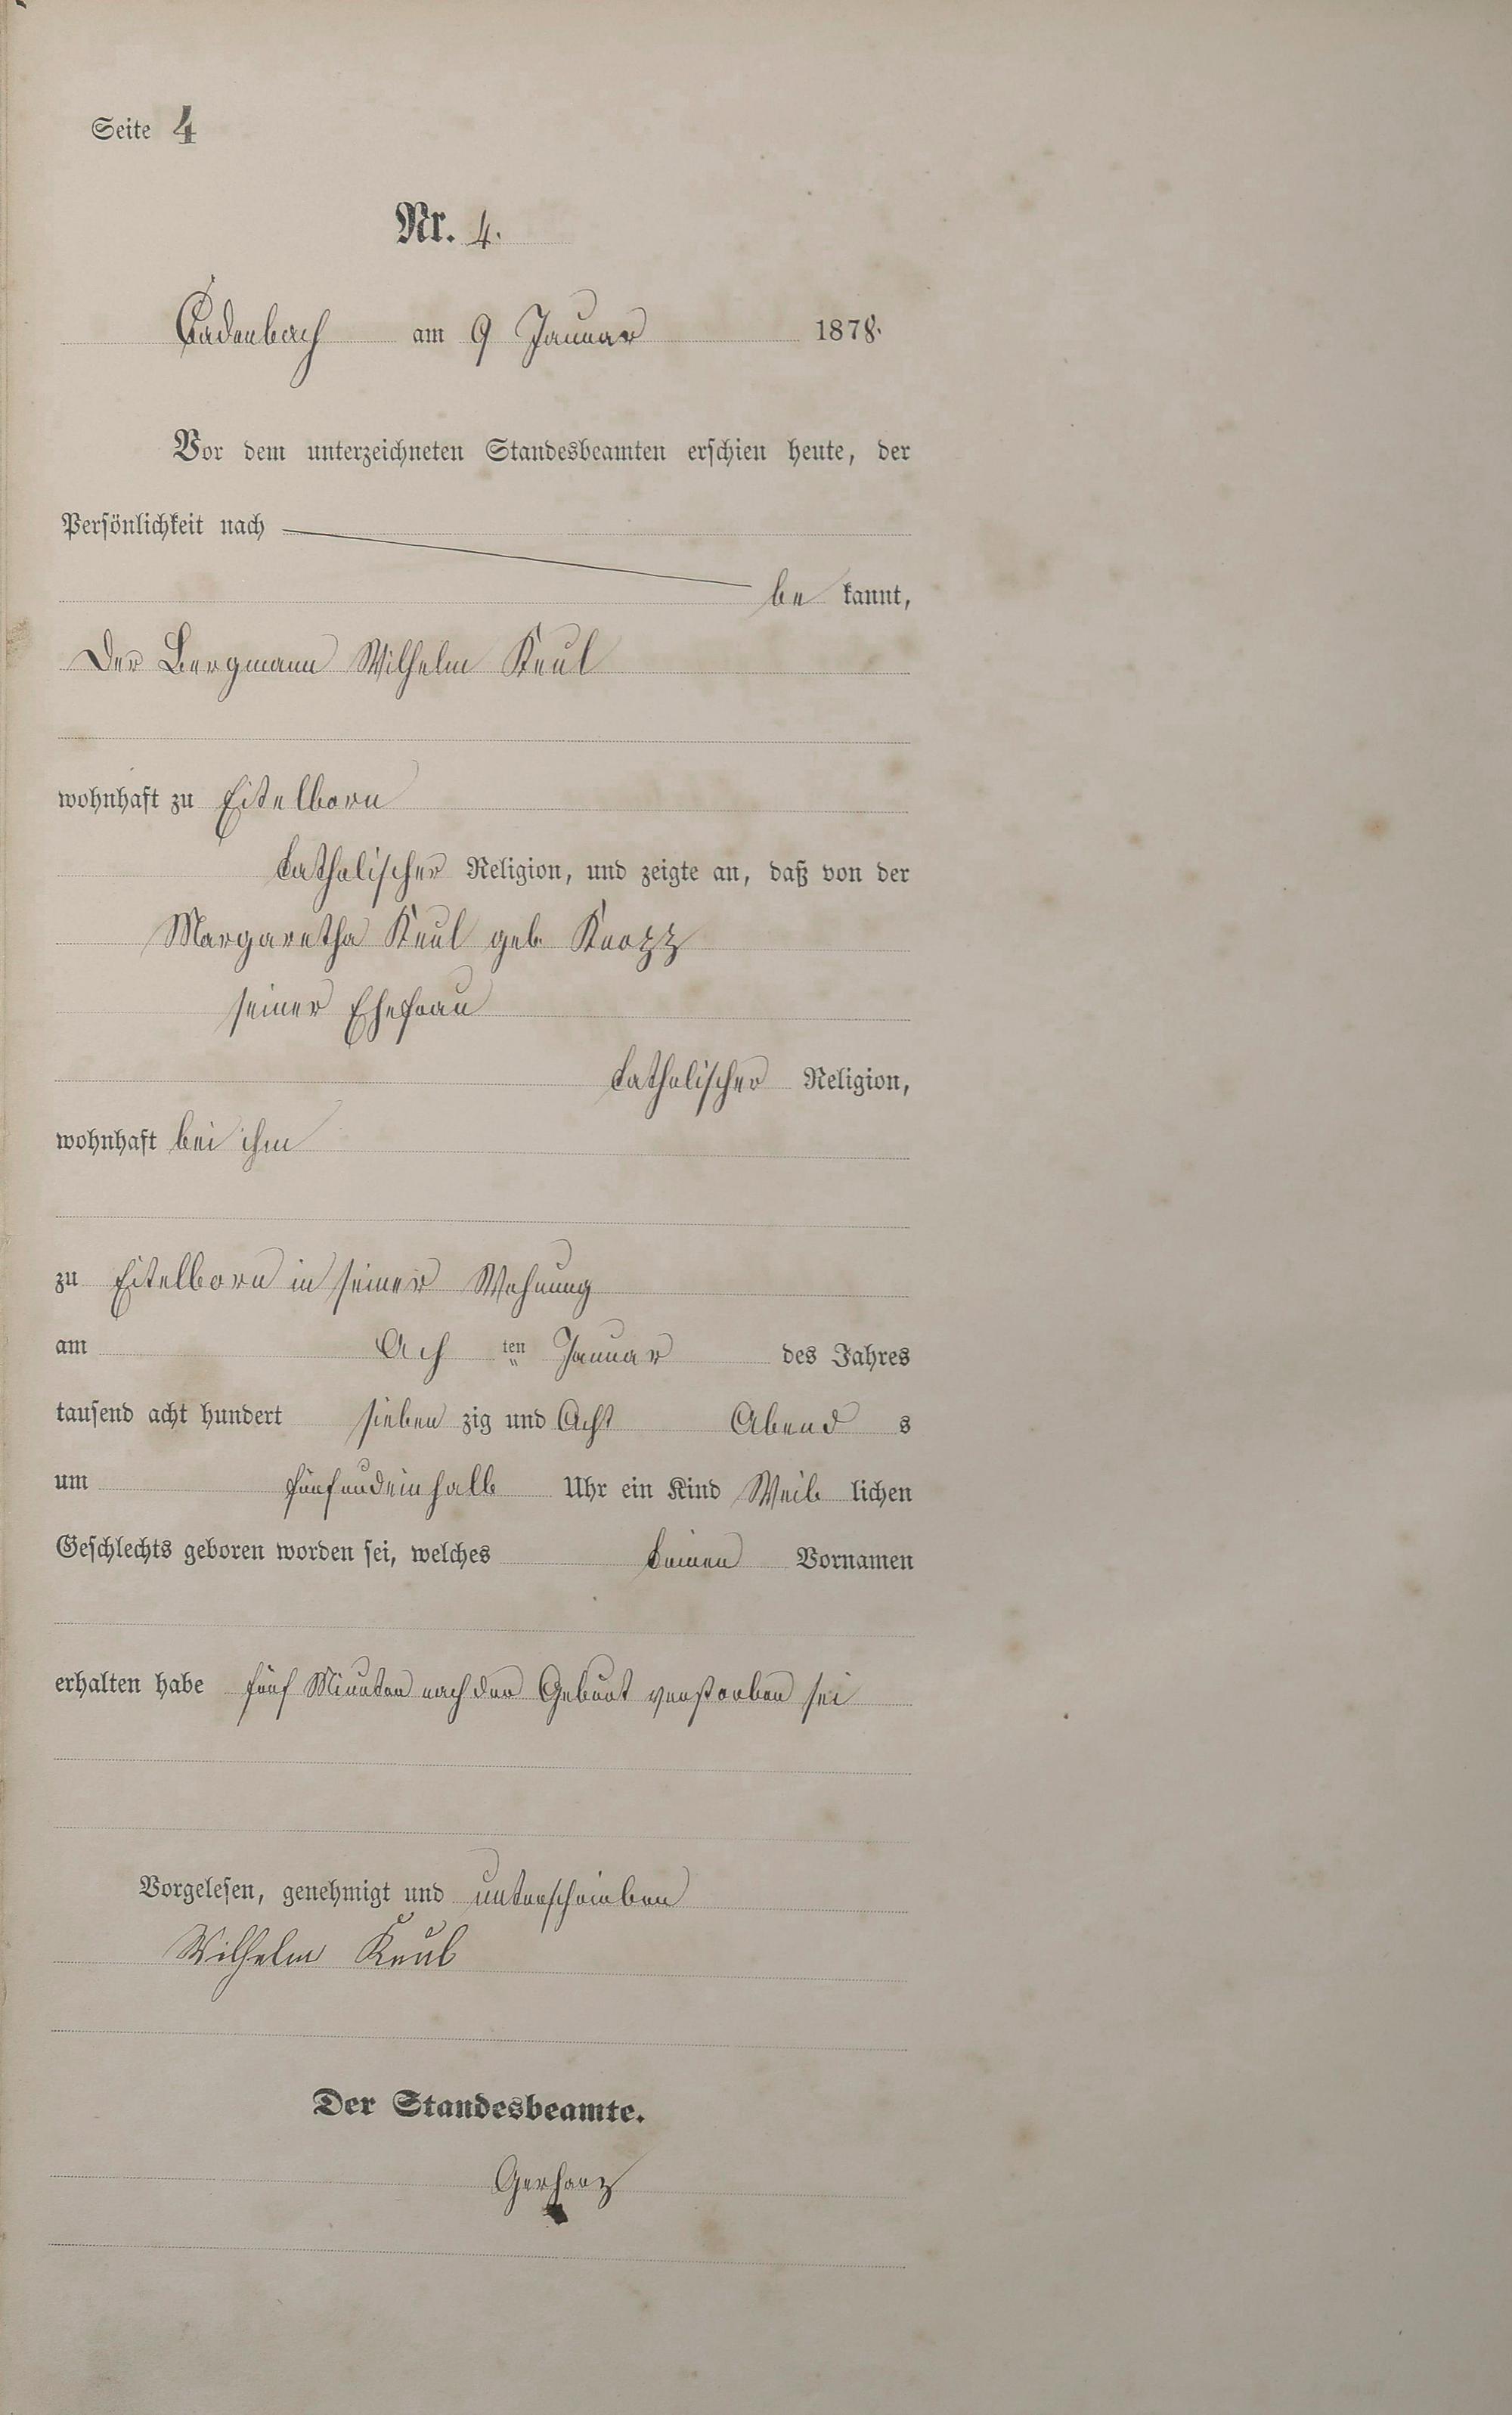 Seite 4
Nr. 4.
Cadenbach am 9 Januar 1878.
Vor dem unterzeichneten Standesbeamten erschien heute, der
Persönlichkeit nach
be kannt,
Der Bergmann Wilhelm Keul
wohnhaft zu Eitelborn
katholischer Religion, und zeigte an, daß von der
Margaretha Keul geb. Knozz
seiner Ehefrau
katholischer Religion,
wohnhaft bei ihm
zu Eitelborn in seiner Wohnung
am Ach ten Januar des Jahres
tausend acht hundert sieben zig und Acht Abend s
um fünfundeinhalb Uhr ein Kind Weib lichen
Geschlechts geboren worden sei, welches keinen Vornamen
erhalten habe fünf Minuten nach der Geburt verstorben sei
Vorgelesen, genehmigt und unterschrieben
Wilhelm Keul
Der Standesbeamte.
Gerharz